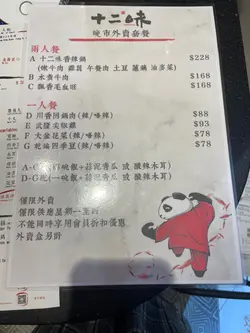 十二味
晚市外賣套餐
兩人餐
A 十二味香辣鍋 $228
(嫩牛肉 雞翼 午餐肉 土豆 蓮藕 油多菜)
B 水煮牛肉 $168
C 飄香毛血旺 $168
一人餐
D 川香回鍋肉(辣/唔辣) $88
E 武隆尖椒雞 $93
F 大盆花菜(辣/唔辣) $78
G 乾煸四季豆(辣/唔辣) $78
青瓜 或 酸辣木耳)
D-G 青瓜 或 酸辣木耳)
僅限外賣
僅限供應星期一至
不能同時享用會員折扣和優惠
外賣盒另計